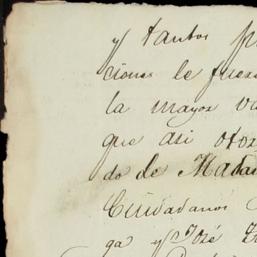 y tantos
ciones le fuer
la mayor
que asi oto
do de Mata
Ciudadanos
ga y José